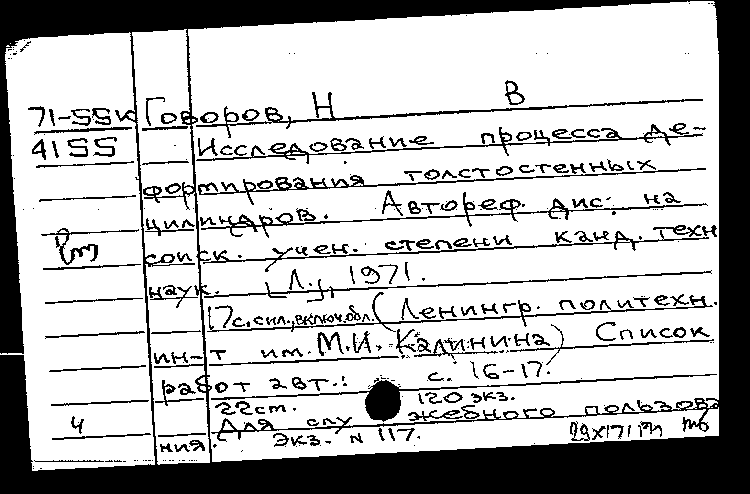 71-55к Говоров, Н В
4155 Исследование процесса де-
формирования толстостенных
цилиндров. Автореф. дис. на
соиск. учен. степени канд. техн
наук. [Л.], 1971.
17с. сил., включ. обл. (Ленингр. политехн.
ин-т им. М.И. Калинина) Список
работ авт.: с. 16-17.
22см. 120 экз.
Для служебного пользова
ч ния. Экз. N 117.